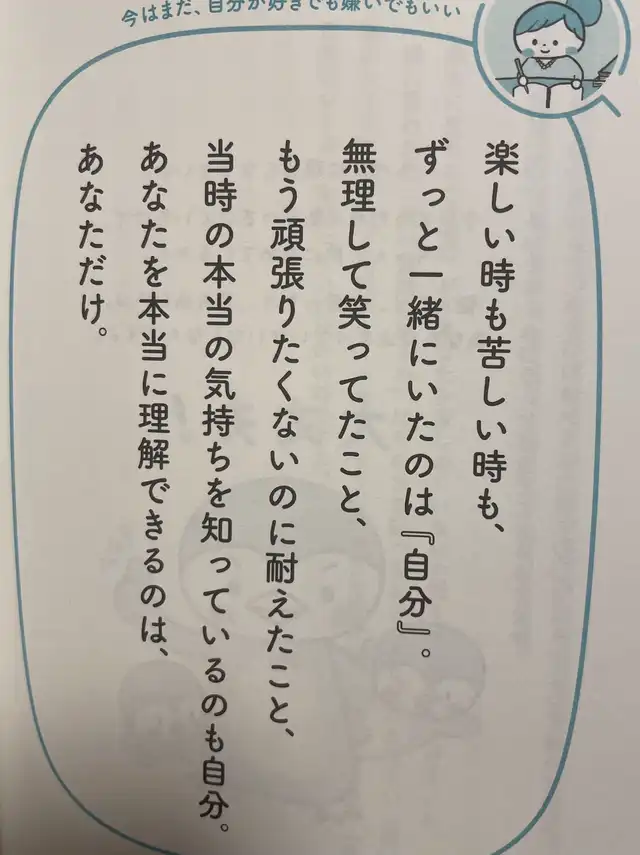 今はまだ、自分が好きでも嫌いでもいい
楽しい時も苦しい時も、
ずっと一緒にいたのは『自分』。
無理して笑ってたこと、
もう頑張りたくないのに耐えたこと、
当時の本当の気持ちを知っているのも自分。
あなたを本当に理解できるのは、
あなただけ。